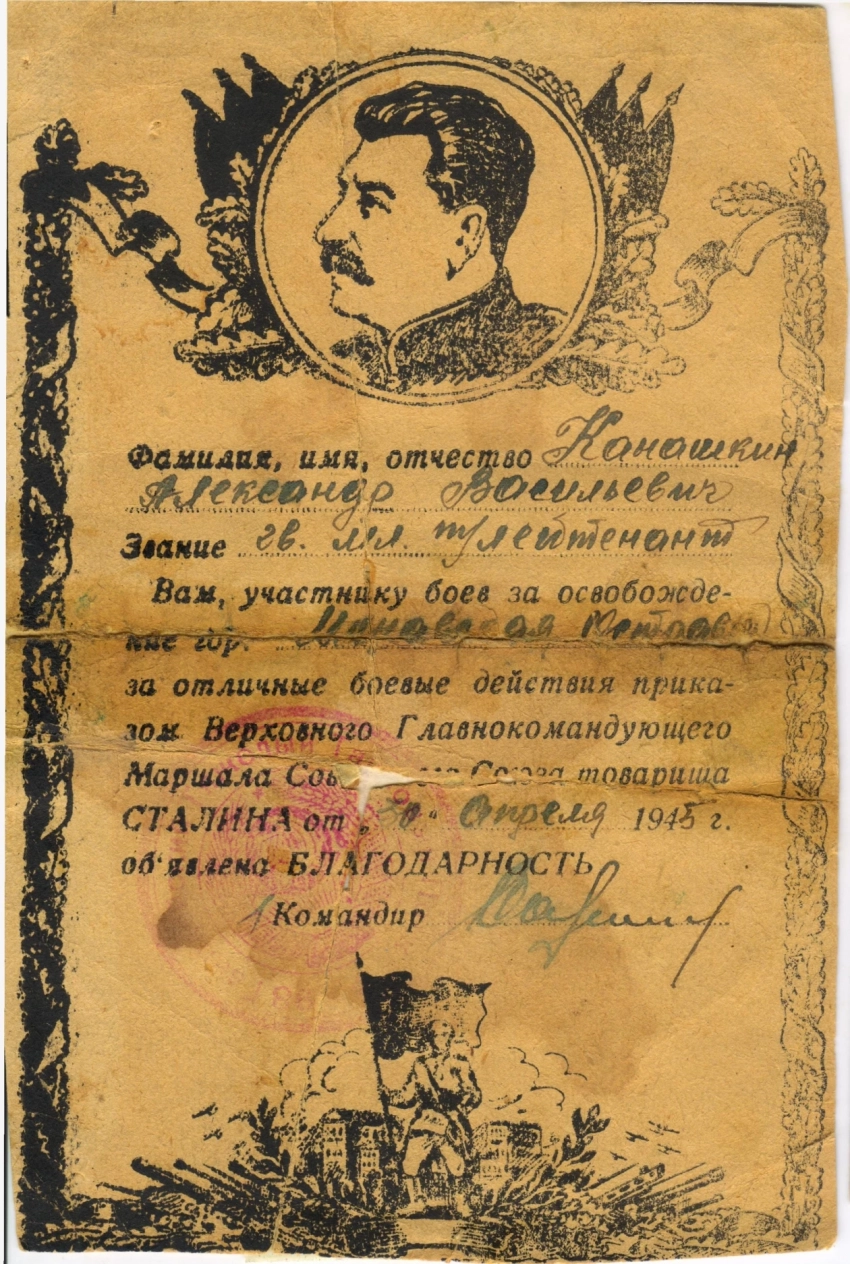 Фамилия, имя, отчество Канашкин
Александр Васильевич
Звание гв. мл. т/лейтенант
Вам, участнику боев за освобожде-
ние гор. Моравская Острава
за отличные боевые действия прика-
зом Верховного Главнокомандующего
Маршала Сов Союза товарища
СТАЛИНА от „30“ Апреля 1945 г.
об'явлена БЛАГОДАРНОСТЬ
Командир